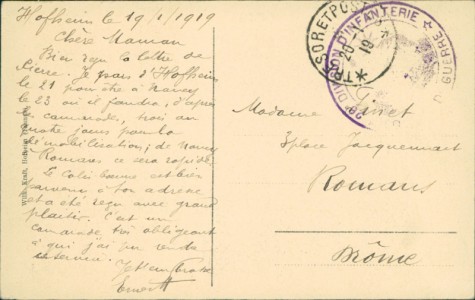 Hofheim le 19/1/1919
Chère Maman
Bien reçu la lettre de
Pierre. Je pars d'Hofheim
le 21 pour être à Nancy
le 23 où il faudra, d'après
un camarade, trois ou
quatre jours pour la
démobilisation; de Nancy
à Romans ce sera rapide.
Le colis est bien
parvenu à son adresse
et a été reçu avec grand
plaisir. C'est un
camarade très obligeant
à qui j'ai pu rendre
service.
Je t'embrasse
Ernest
TRESOR ET POSTES
20
19
DIVISION D'INFANTERIE
GUERRE
Madame
place Jacquemart
Romans
Drôme